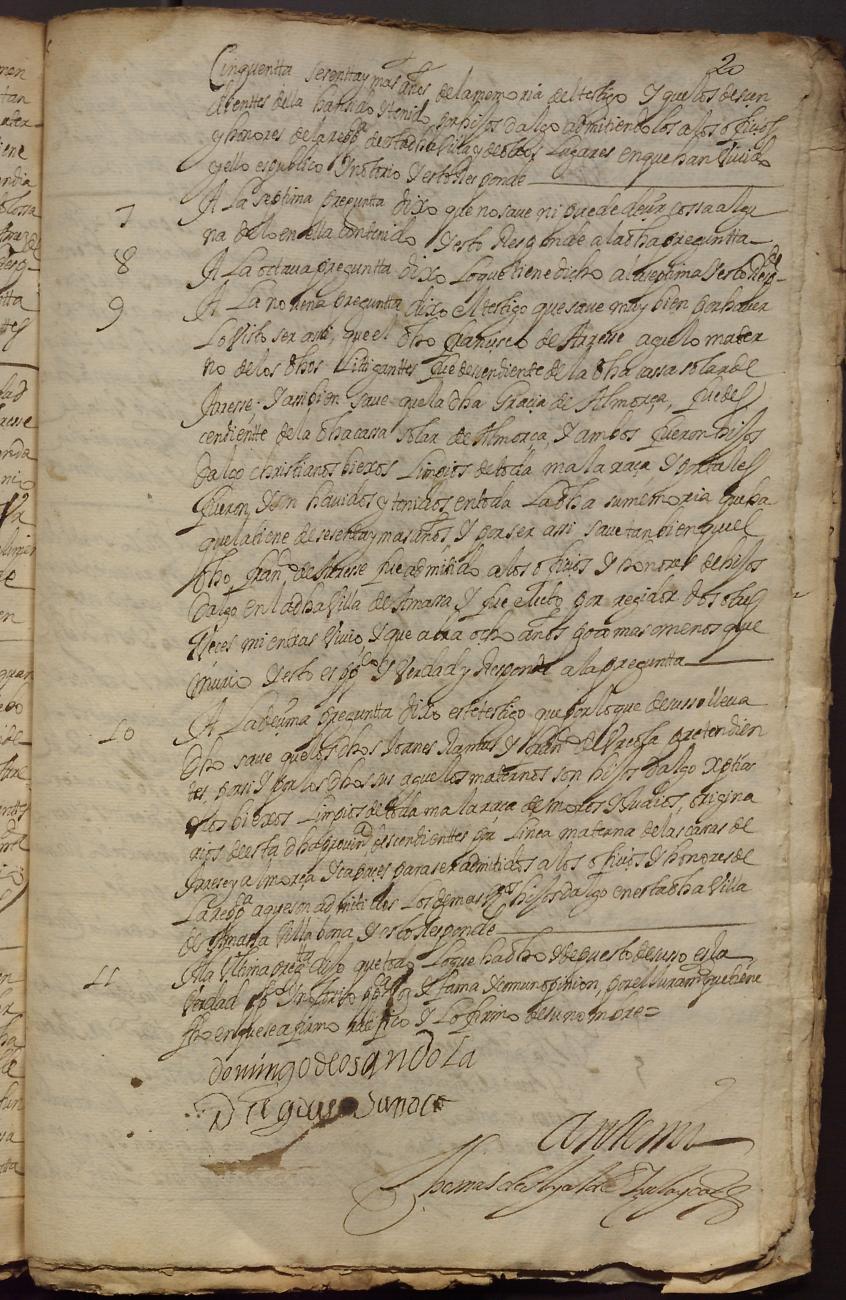 20
Cinquentta sesentta y mas años de la memoria del testigo Y que los descen
dienttes della han sido Y tenidos por hijos dalgo admitiendolos a los oficios
y honores de la rep.ca de esta dha Villa y de otros Lugares en que han Vivido
y ello es publico Y notorio Y esto Responde
7 A La septima pregunta dixo que no save ni puede decir cossa algu
na de lo en ella contenido Y esto Responde a la dha preguntta
8 A La octava preguntta dixo Lo que tiene dicho a la septima Y esto Resp.de
9 A La novena preguntta dixo el testigo que save muy bien por haver
Lo Visto ser assi, que el dho Francisco de Yraesse aguelo mater
no de los dhos Littiganttes fue descendiente de la dha cassa solar de
Yraesse. Y tambien save que la dha Gracia de Almorça, fue des
cendientte de la dha cassa solar de Almorça, Y ambos fueron hijos
dalgo christianos biexos Limpios de toda mala raça Y por tales
fueron, Y son havidos y tenidos, en toda La dha su memoria
que la tiene de sesenta y mas años, Y por ser assi, save tambien que el
dho fran.co de Yraesse fue admitido a los oficios Y honores de hijos
dalgo en la dha Villa de Amassa, Y fue eleto por regidor
Veces mientras Vivio, Y que abra ocho años poco mas o menos que
murio Y esto es pp.co Y Verdad y Responde a la preguntta
10 A La decima preguntta dixo este testigo que por lo que de susso lleva
dho save que los dhos Joanes Y pretendien
tes, por si Y por los dhos sus aguelos maternos son hijos dalgo xptia
nos biexos Limpios de toda mala raça de moros Y Judios, origina
rios de esta dha provin.a descendienttes por Linea materna de las casas de
Yraesse y almorça Y capaces para ser admitidos a los oficios Y honores de
La rep.ca a que son admitidos Los demas hijos dalgo en esta dha Villa
de Amassa Villabona, Y esto Responde
11 A la Ultima preg.ta dijo que todo Lo que ha dho Y depuesto de susso es la
Verdad pp.co Y notorio pp.ca voz Y fama Y comun opinion, por el Juram.to que tiene
fho en que se afirmo ratifico Y Lo firmo de su nombre=
domingo de osandola
Ante mi
Thomas de